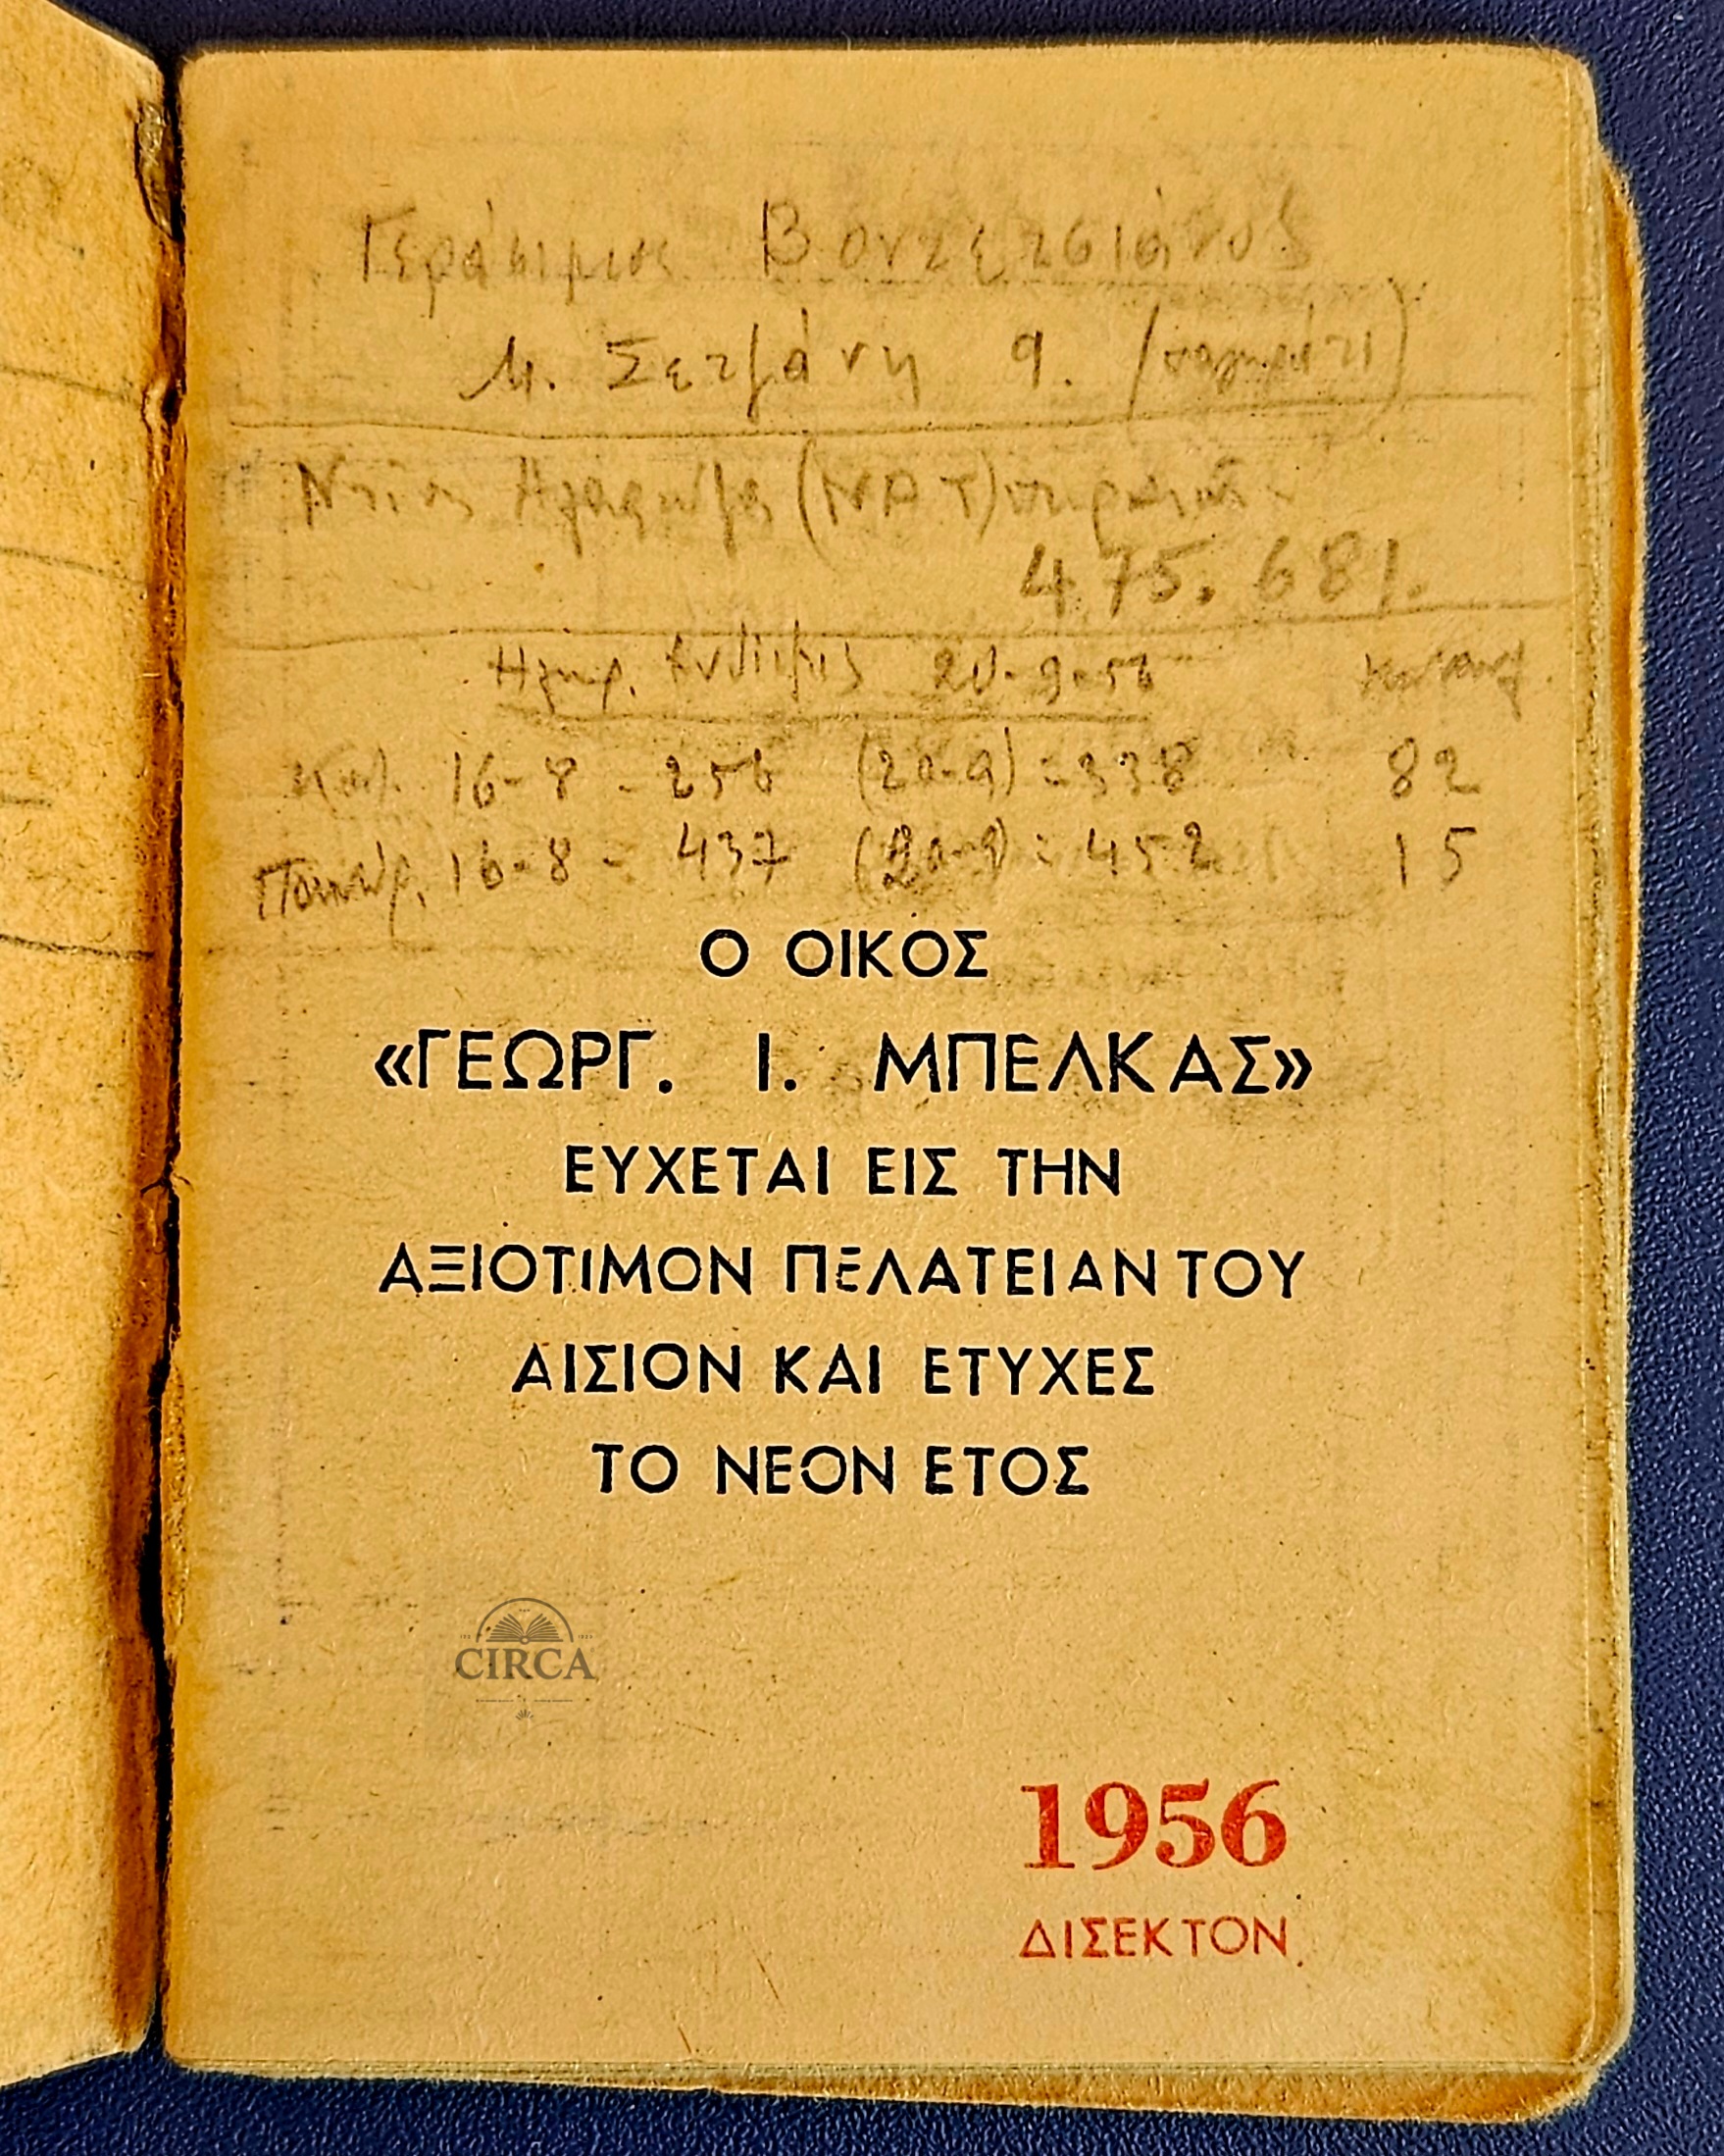 Γεράσιμος Βουτσιάνος
Μ. Σετζάνη 9. (παγκράτι)
Ντίνος (ΝΑΤ)
475.681.
20-9-56
16-8 - 256 (20-9) = 338 82
16-8 - 437 (20-9) = 452 15
Ο ΟΙΚΟΣ
«ΓΕΩΡΓ. Ι. ΜΠΕΛΚΑΣ»
ΕΥΧΕΤΑΙ ΕΙΣ ΤΗΝ
ΑΞΙΟΤΙΜΟΝ ΠΕΛΑΤΕΙΑΝ ΤΟΥ
ΑΙΣΙΟΝ ΚΑΙ ΕΤΥΧΕΣ
ΤΟ ΝΕΟΝ ΕΤΟΣ
CIRCA
1956
ΔΙΣΕΚΤΟΝ